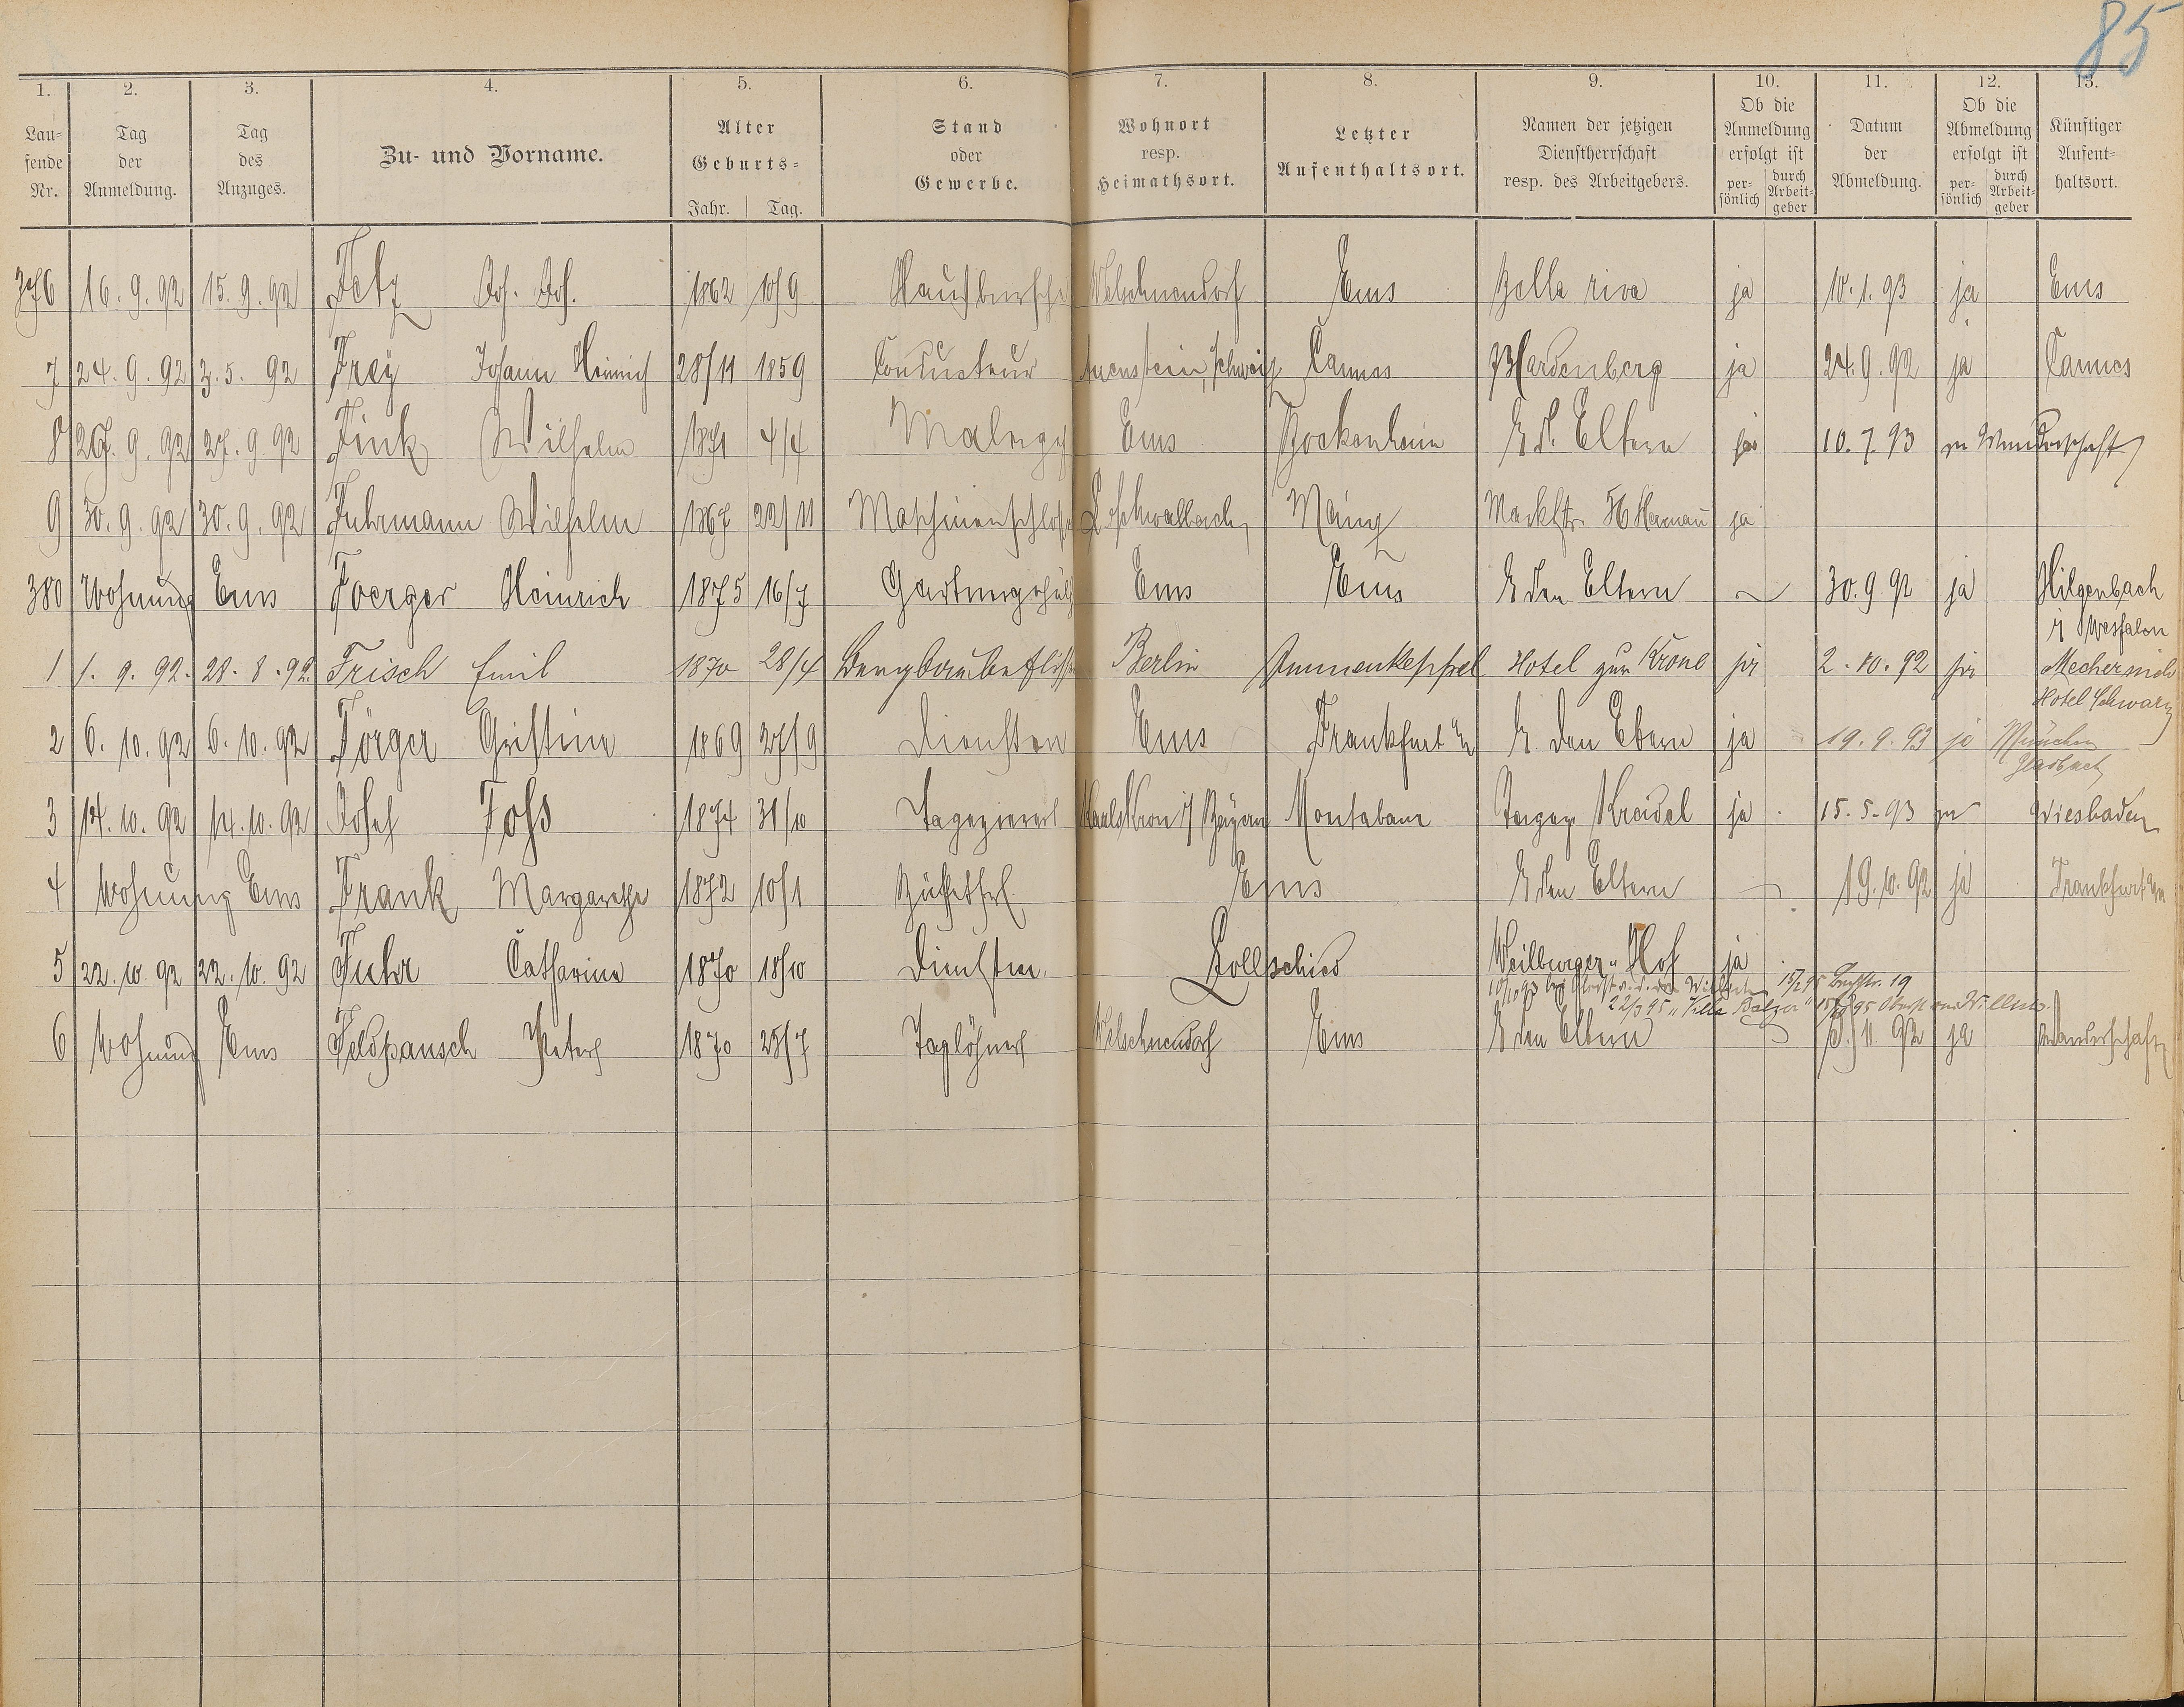 85
1. 2. 3. 4. 5. 6. 7. 8. 9. 10. 11. 12. 13.
Lau-
fende
Nr.
Tag
der
Anmeldung.
Tag
des
Anzuges.
Zu- und Vorname.
Alter
Geburts-
Jahr. Tag.
Stand
oder
Gewerbe.
Wohnort
resp.
Heimathsort.
Letzter
Aufenthaltsort.
Namen der jetzigen
Dienstherrschaft
resp. des Arbeitgebers.
Ob die
Anmeldung
erfolgt ist
per-
sönlich
durch
Arbeit-
geber
Datum
der
Abmeldung.
Ob die
Abmeldung
erfolgt ist
per-
sönlich
durch
Arbeit-
geber
Künftiger
Aufent-
haltsort.
376 16. 9. 92 15. 9. 92 Fetz Joh. Jos. 1862 10/9 Hausbursche Welschneudorf Ems Bella riva ja 10. 1. 93 ja Ems
7 24. 9. 92 3. 5. 92 Frey Johann Heinrich 28/11 1859 Conducteur Auenstein, Schweiz Cannes Hardenberg ja 24. 9. 92 ja Cannes
8 27. 9. 92 27. 9. 92 Fink Wilhelm 1871 4/4 Ems Bockenheim b. d. Eltern ja 10. 7. 93 Wanderschaft
9 30. 9. 92 30. 9. 92 Fuhrmann Wilhelm 1867 22/11 Maschinenschloss L. Schwalbach Mainz Marktstr. ja
380 Wohnung Ems Foerger Heinrich 1875 16/7 Ems Ems b. den Eltern 30. 9. 92 ja Hilgenbach
i/ Westfalen
1 1. 9. 92. 28. 8. 92. Frisch Emil 1870 28/4 Bergbaubefliss Berlin Hotel zur Krone ja 2. 10. 92 ja Mechernich
Hotel Schwarz
2 6. 10. 92 6. 10. 92 Förger Christine 1869 27/9 Dienstm Ems Frankfurt b. den Eltern ja 19. 9. 93 ja München
Gladbach
3 14. 10. 92 14. 10. 92 Josef Fohs 1874 31/10 Tapezierer Karlskron i/ Bayern Montabaur Kreidel ja 15. 5. 93 ja Wiesbaden
4 Wohnung Ems Frank Margarethe 1872 10/1 Büffetfrl. Ems b. den Eltern 19. 10. 92 ja Frankfurt a/m
5 22. 10. 92 22. 10. 92 Fuhr Catharina 1870 18/10 Dienstm. Zollschied Weilburger Hof ja
22/3 95 "Villa Balzer"
6 Wohnung Ems Feldpausch Peter 1870 25/7 Taglöhner Welschneudorf Ems b. den Eltern 11. 92 ja Wanderschaft